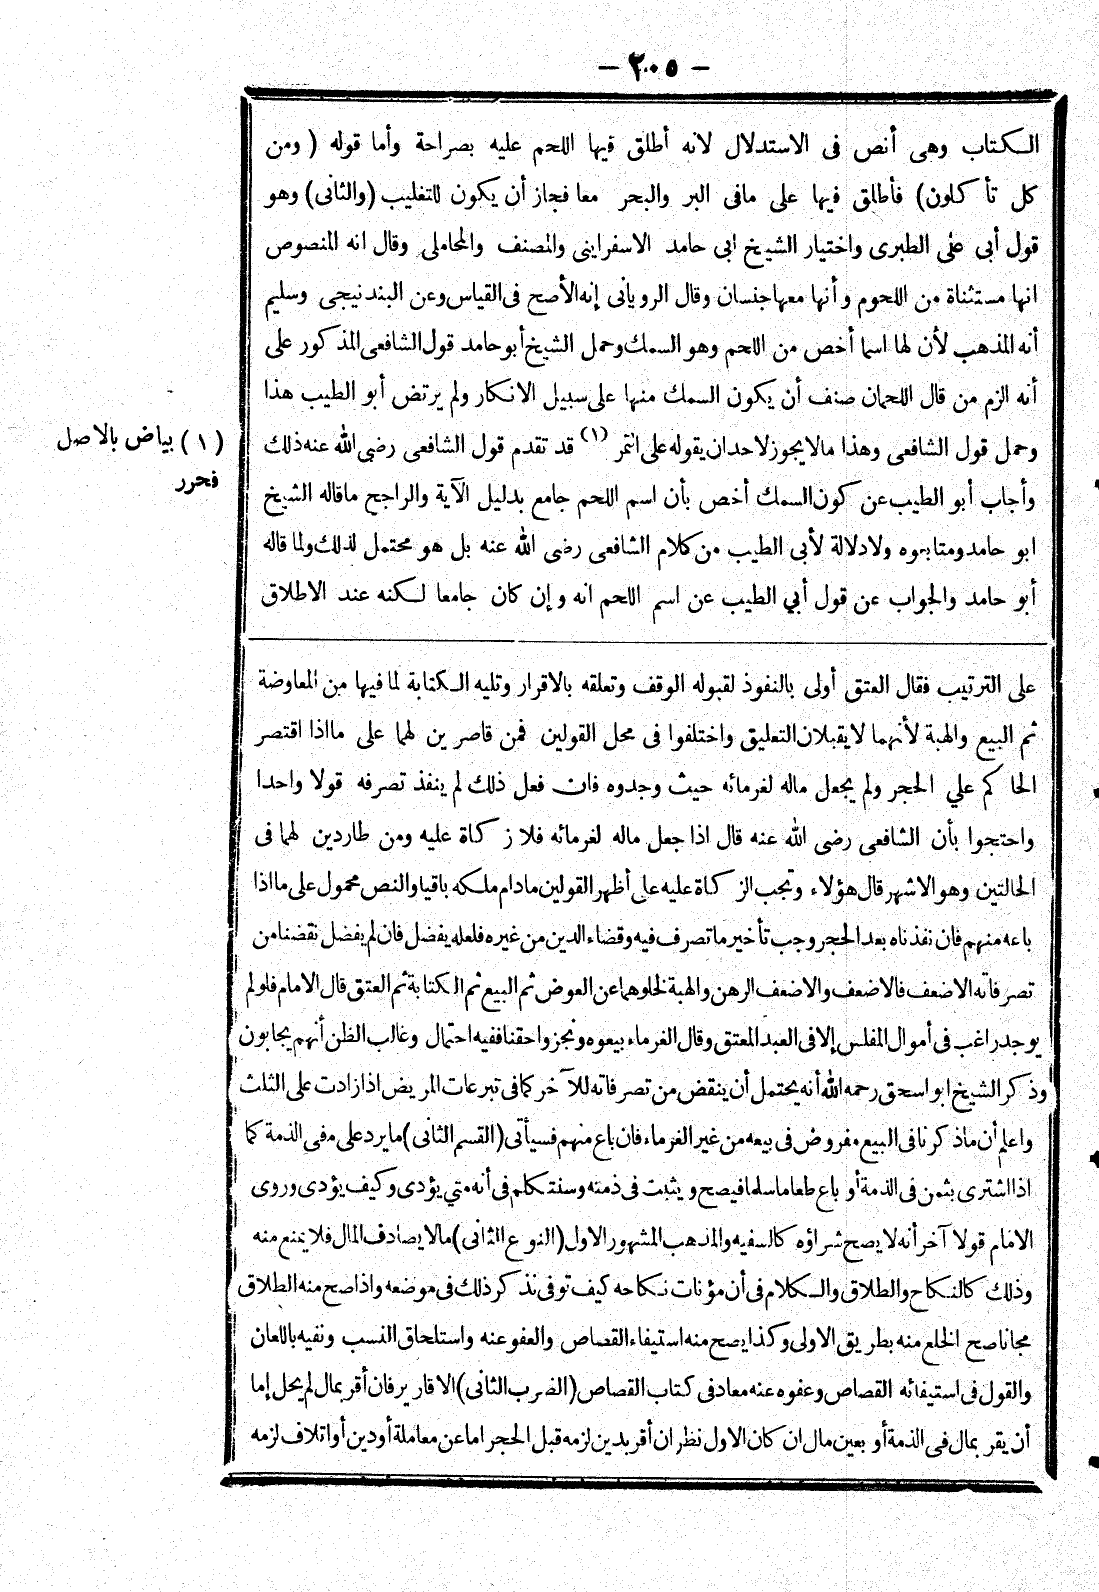 — ٢٠٥ —
الكتاب وهى أنص فى الاستدلال لانه أطلق فيها اللحم عليه بصراحة وأما قوله ( ومن
كل تأكلون) فأطلق فيها على مافى البر والبحر معا فجاز أن يكون للتغليب (والثانى) وهو
قول أبى على الطبرى واختيار الشيخ ابى حامد الاسفراينى والمصنف والمحاملى وقال انه المنصوص
انها مستثناة من اللحوم وأنها معها جنسان وقال الرويانى إنه الأصح فى القياس وعن البندنيجى وسليم
أنه المذهب لأن لها اسما أخص من اللحم وهو السمك وحمل الشيخ أبو حامد قول الشافعى المذكور على
أنه الزم من قال اللحمان صنف أن يكون السمك منها على سبيل الانكار ولم يرتض أبو الطيب هذا
وحمل قول الشافعى وهذا مالا يجوز لاحد ان يقوله على التمر (١) قد تقدم قول الشافعى رضى الله عنه ذلك
وأجاب أبو الطيب عن كون السمك أخص بأن اسم اللحم جامع بدليل الآية والراجح ماقاله الشيخ
ابو حامد ومتابعوه ولادلالة لأبى الطيب من كلام الشافعى رضى الله عنه بل هو محتمل لذلك ولما قاله
أبو حامد والجواب عن قول أبي الطيب عن اسم اللحم انه وإن كان جامعا لكنه عند الاطلاق
(١) بياض بالاصل
فحرر
على الترتيب فقال العتق أولى بالنفوذ لقبوله الوقف وتعلقه بالاقرار وتليه الكتابة لما فيها من المعاوضة
ثم البيع والهبة لأنهما لا يقبلان التعليق واختلفوا فى محل القولين فمن قاصرين لهما على مااذا اقتصر
الحاكم علي الحجر ولم يجعل ماله لغرمائه حيث وجدوه فان فعل ذلك لم ينفذ تصرفه قولا واحدا
واحتجوا بأن الشافعى رضى الله عنه قال اذا جعل ماله لغرمائه فلا زكاة عليه ومن طاردين لهما فى
الحالتين وهو الاشهر قال هؤلاء وتجب الزكاة عليه على أظهر القولين مادام ملكه باقيا والنص محمول على مااذا
باعه منهم فان نفذناه بعد الحجر وجب تأخير ما تصرف فيه وقضاء الدين من غيره فلعله يفضل فان لم يفضل نقضنا من
تصرفاته الاضعف فالاضعف والاضعف الرهن والهبة لخلوهما عن العوض ثم البيع ثم الكتابة ثم العتق قال الامام فلو لم
يوجد راغب فى أموال المفلس إلا فى العبد المعتق وقال الغرماء بيعوه ونجزوا حقنا ففيه احتمال وغالب الظن أنهم يجابون
وذكر الشيخ ابو اسحق رحمه الله أنه يحتمل أن ينقض من تصرفاته للآخر كما فى تبرعات المريض اذا زادت على الثلث
واعلم أن ماذكرنا فى البيع مفروض فى بيعه من غير الغرماء فان باع منهم فسيأتى (القسم الثانى) ما يرد على مفى الذمة كما
اذا اشترى بثمن فى الذمة أو باع طعاما سلما فيصح ويثبت فى ذمته وسنتكلم فى أنه متي يؤدى وكيف يؤدى وروى
الامام قولا آخر أنه لا يصح شراؤه كالسفيه والمذهب المشهور الاول (النوع الثانى) مالا يصادف المال فلا يمنع منه
وذلك كالنكاح والطلاق والكلام فى أن مؤنات نكاحه كيف توفى نذكر ذلك فى موضعه واذا صح منه الطلاق
مجانا صح الخلع منه بطريق الاولى وكذا يصح منه استيفاء القصاص والعفو عنه واستلحاق النسب ونفيه باللعان
والقول فى استيفائه القصاص وعفوه عنه معاد فى كتاب القصاص (الضرب الثانى) الاقارير فان أقر بمال لم يخل إما
أن يقر بمال فى الذمة أو بعين مال ان كان الاول نظر ان أقر بدين لزمه قبل الحجر اما عن معاملة أو دين أو اتلاف لزمه